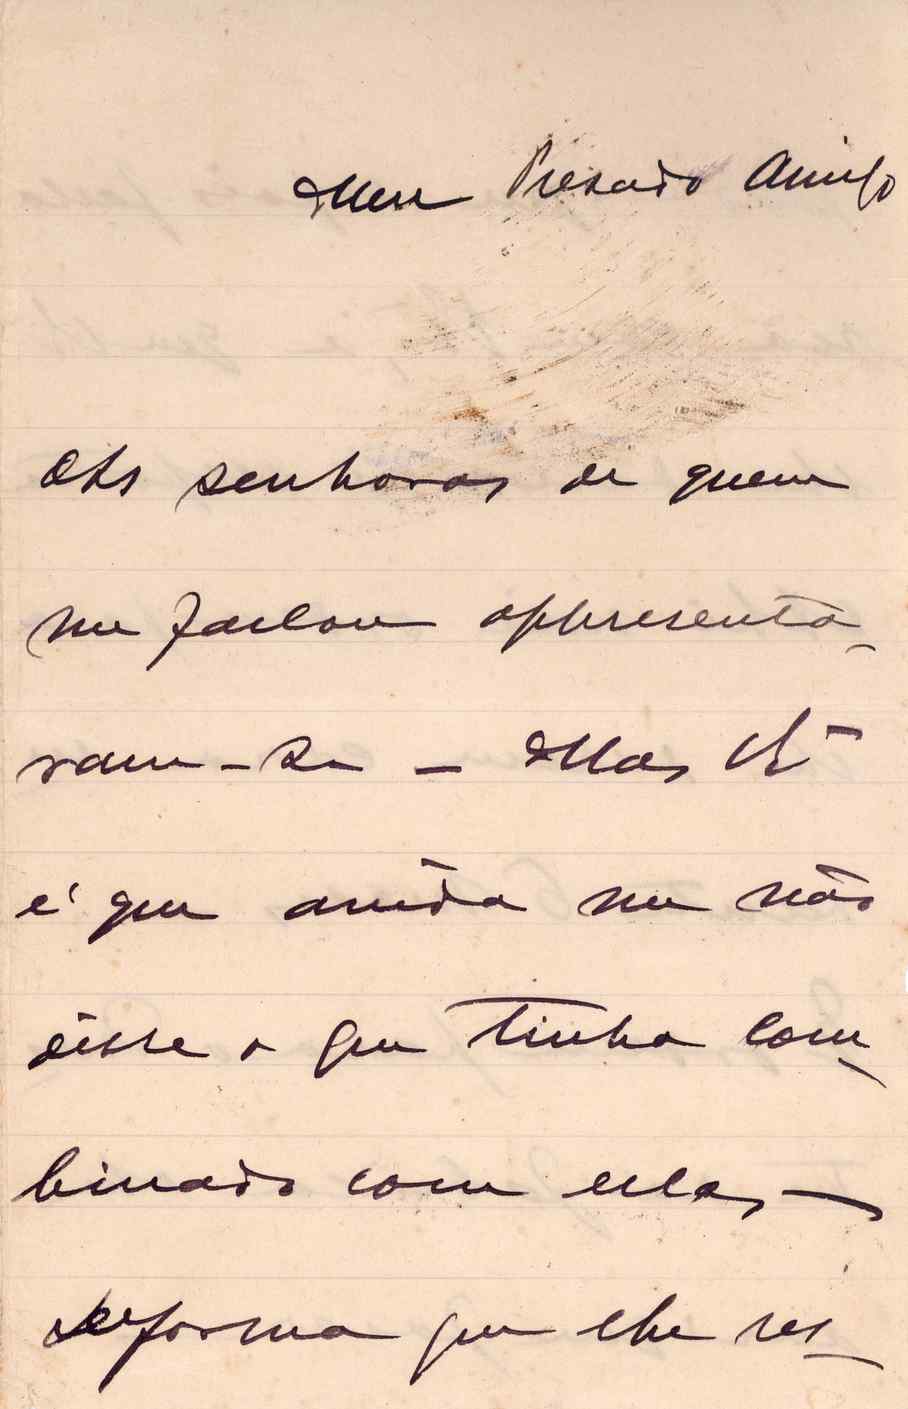 Meu Presado Amigo
As senhoras de quem
me fallou appresenta-
ram-se - Mas V. Ex.
é que ainda me não
disse o que tinha com-
binado com ellas -
De forma que lhe res-